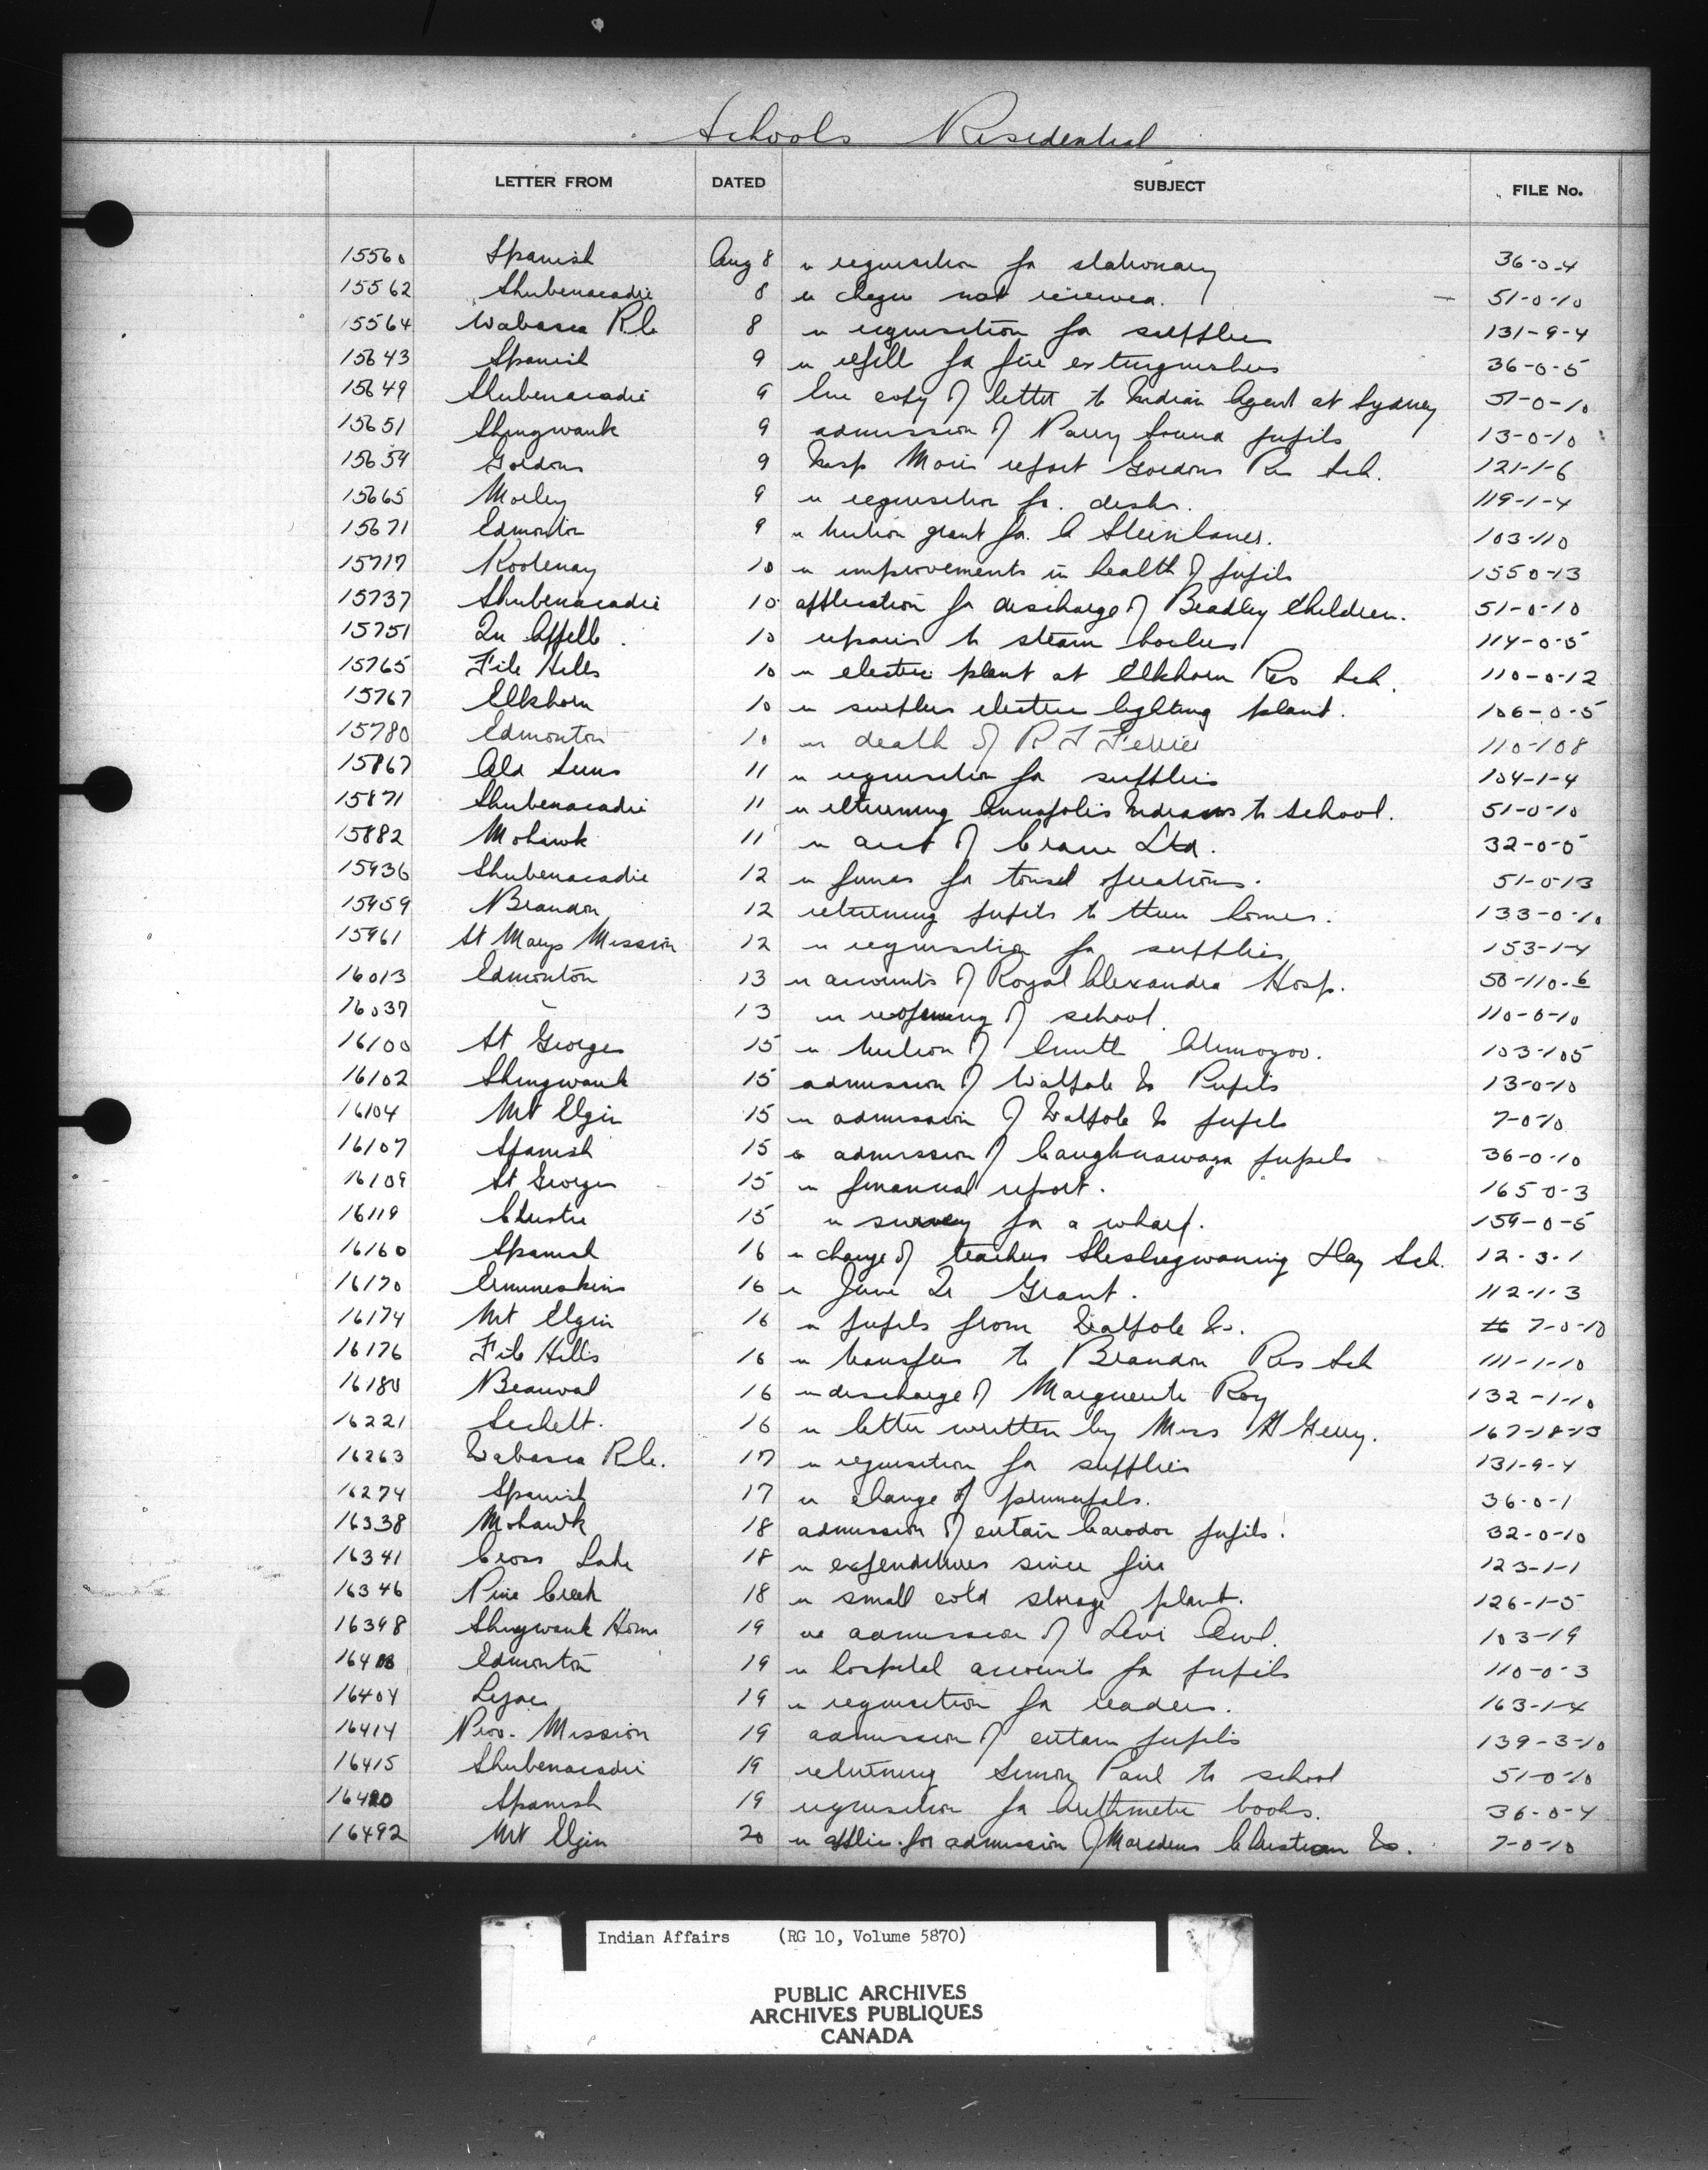 Schools Residential
LETTER FROM DATED SUBJECT FILE No.
15560 Spanish Aug 8 re requisition for stationary 36-0-4
15562 Shubenacadie 8 re cheque not received. 51-0-10
15564 Wabasca R.C. 8 re requisition for supplies 131-9-4
15643 Spanish 9 re refill for fire extinguishers 36-0-5
15649 Shubenacadie 9 Enc copy of letter to Indian Agent at Sydney 51-0-10
15651 Shingwauk 9 admission of Parry Sound pupils 13-0-10
15659 Gordons 9 Insp. report Gordons Res Sch. 121-1-6
15665 Morley 9 re requisition for desks. 119-1-4
15671 Edmonton 9 re tuition grant for C Steinhauer. 103-110
15717 Kootenay 10 re improvements in health of pupils 155 0-13
15737 Shubenacadie 10 application for discharge of Bradley Children. 51-0-10
15751 Qu Appelle. 10 repairs to steam boilers 114-0-5
15765 File Hills 10 re electric plant at Elkhorn Res Sch. 110-0-12
15767 Elkhorn 10 re surplus electric lighting plant. 106-0-5
15780 Edmonton 10 re death of R F Ferrier 110-108
15867 Old Suns 11 re requisition for supplies 104-1-4
15871 Shubenacadie 11 re returning Annapolis Indians to School. 51-0-10
15882 Mohawk 11 re acct of Crane Ltd. 32-0-5
15936 Shubenacadie 12 re funds for tonsil operations. 51-0-13
15959 Brandon 12 returning pupils to their homes. 133-0-10
15961 St Marys Mission 12 re requisition for supplies 153-1-4
16013 Edmonton 13 re accounts of Royal Alexandra Hosp. 50-110-6
16037 " 13 re reopening of school. 110-0-10
16100 St Georges 15 re tuition of 103-105
16102 Shingwauk 15 admission of Walpole Is Pupils 13-0-10
16104 Mt Elgin 15 re admission of Walpole Is pupils 7-0-10
16107 Spanish 15 re admission of Caughnawaga pupils 36-0-10
16109 St Georges 15 re financial report. 165 0-3
16119 Christie 15 re survey for a wharf. 159-0-5
16160 Spanish 16 re change of teachers Sheshegwaning Day Sch. 12-3-1
16170 Ermineskins 16 re June Qr Grant. 112-1-3
16174 Mt Elgin 16 re pupils from Walpole Is. 7-0-10
16176 File Hills 16 re transfers to Brandon Res Sch 111-1-10
16180 Beauval 16 re discharge of Marguerite Roy 132-1-10
16221 Sechelt. 16 re letter written by Miss H Gerry. 167-18-13
16263 Wabasca R.C. 17 re requisition for supplies 131-9-4
16274 Spanish 17 re change of principals. 36-0-1
16338 Mohawk 18 admission of certain Caradoc pupils. 32-0-10
16341 Cross Lake 18 re expenditures since fire 123-1-1
16346 Pine Creek 18 re small cold storage plant. 126-1-5
16398 Shingwauk Home 19 re admission of Levi 103-19
Edmonton 19 re hospital accounts for pupils 110-0-3
16404 Lejac 19 re requisition for readers. 163-1-4
16414 Prov. Mission 19 admission of certain pupils 139-3-10
16415 Shubenacadie 19 returning Simon Paul to school 51-0-10
16420 Spanish 19 requisition for Arithmetic books. 36-0-4
16492 Mt Elgin 20 re applic. for admission of Christian Is. 7-0-10
Indian Affairs (RG 10, Volume 5870)
PUBLIC ARCHIVES
ARCHIVES PUBLIQUES
CANADA